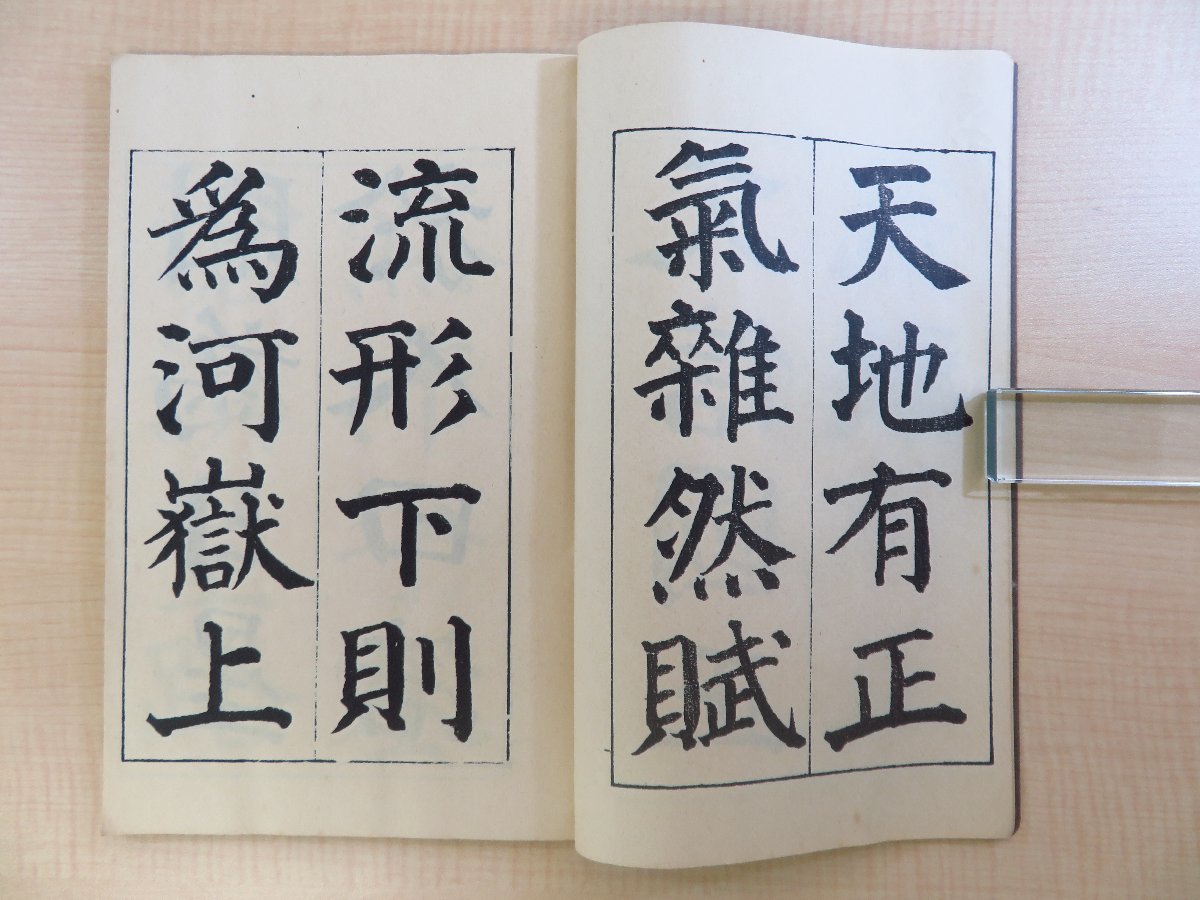 天地有正
氣雜然賦
流形下則
爲河嶽上